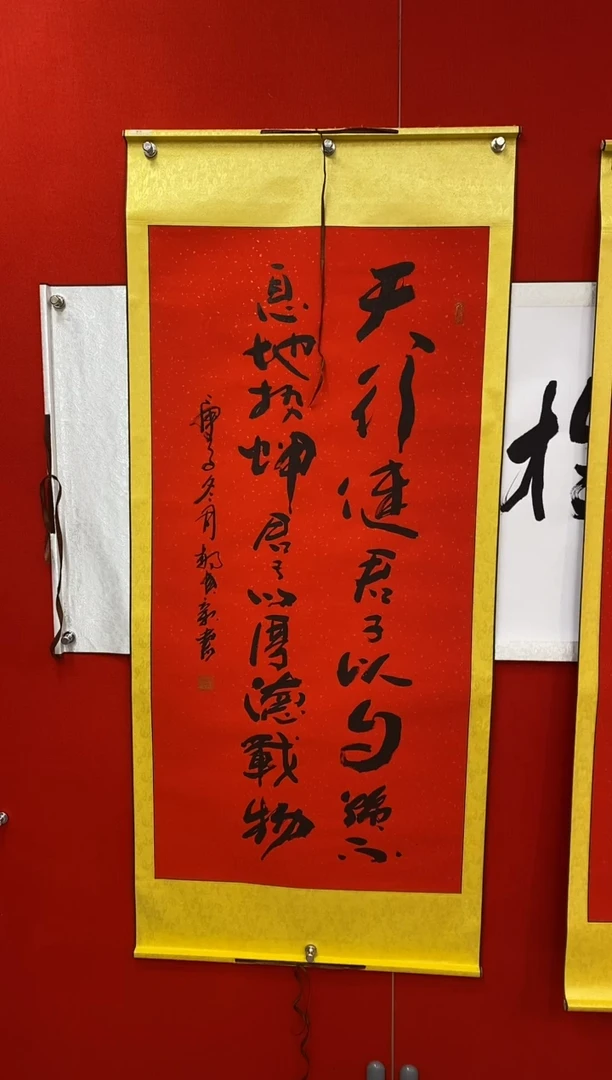 天行健君子以自强不
息地势坤君子以厚德载物
庚子冬月